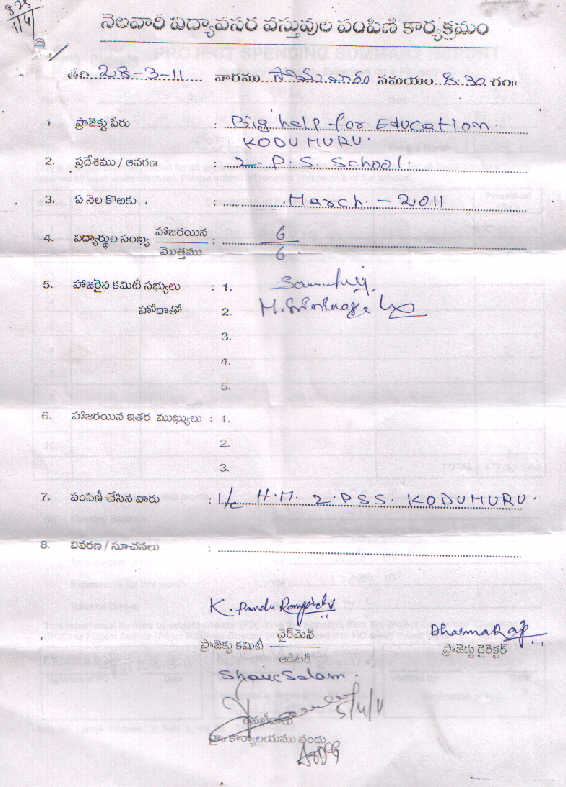 నెలవారి విద్యావసర వస్తువుల పంపిణి కార్యక్రమం
తేది 28-3-11 వారము సోమవారం సమయం 8.30 గం॥
1. ప్రాజెక్టు పేరు : Big help for Education. KODUMURU.
2. ప్రదేశము / ఆవరణ : 2 P.S. School.
3. ఏ నెల కొఱకు . : March - 2011
4. విద్యార్థుల సంఖ్య హాజరయిన : 6
మొత్తము 6
5. హాజరైన కమిటీ సభ్యులు : 1.
హోదాతో 2.
3.
4.
5.
6. హాజరయిన ఇతర ముఖ్యులు : 1.
2.
3.
7. పంపిణీ చేసిన వారు : I/c H.M. 2.PSS. KODUMURU.
8. వివరణ / సూచనలు :
K. Pandu Rangadu
ఛైర్మెన్
ప్రాజెక్టు కమిటీ
DharmaRaj
ప్రాజెక్టు డైరెక్టర్
Shaik Salam.
5/4/11